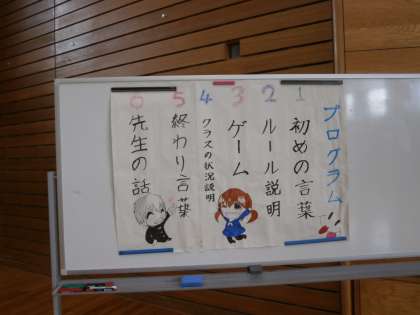 プログラム
1 初めの言葉
2 ルール説明
3 ゲーム
4 クラスの状況説明
5 終わり言葉
6 先生の話